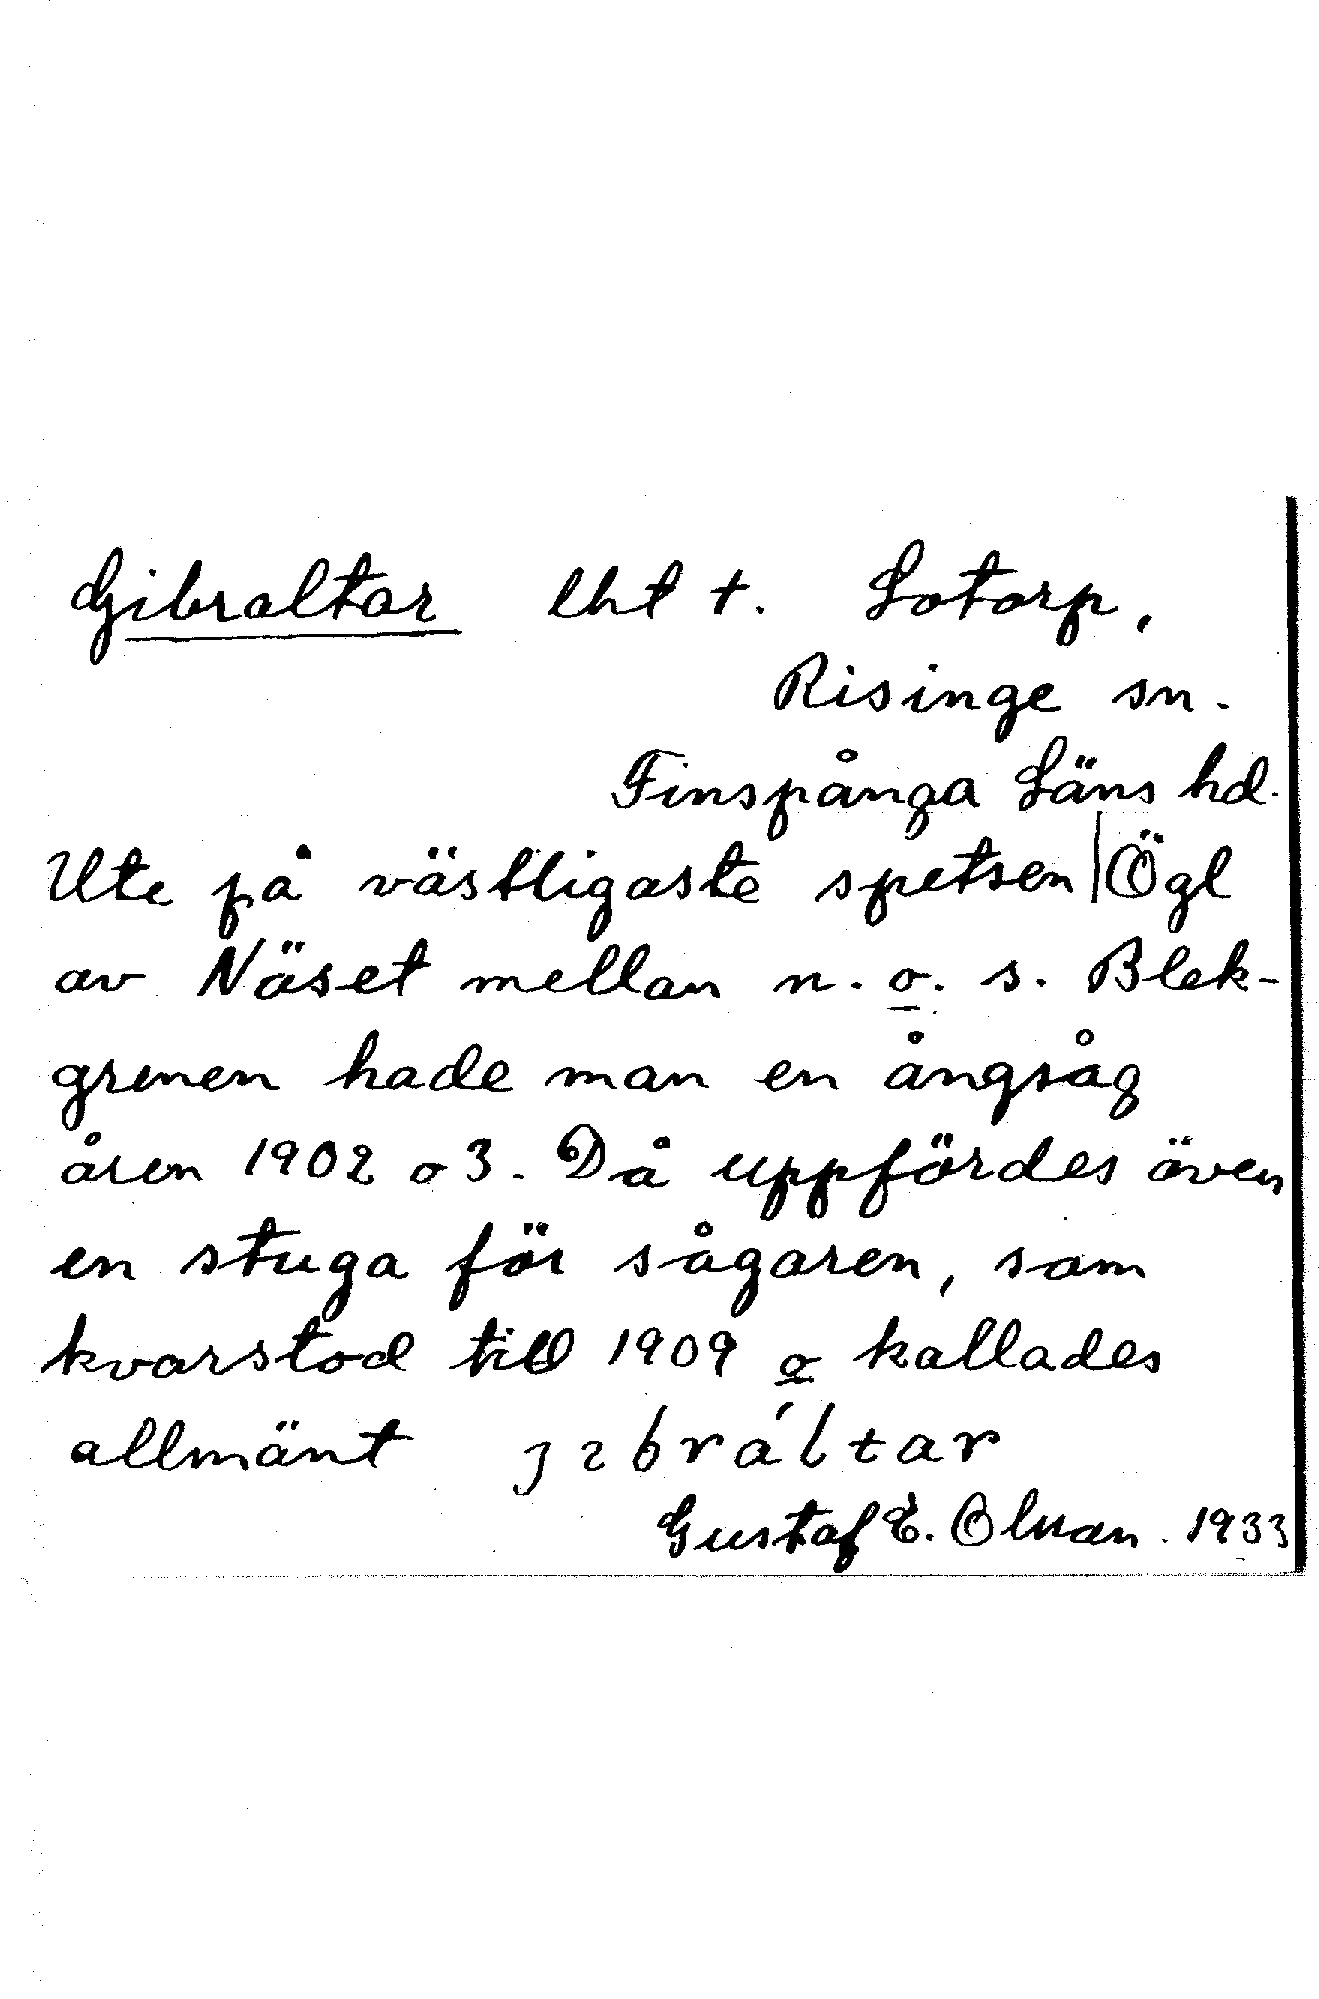 Gibraltar lht t. Lotorp,
Risinge sn.
Finspånga Läns hd.
Ute på västligaste spetsen | Ögl
av Näset mellan n. o. s. Blek-
grenen hade man en ångsåg
åren 1902 o 3. Då uppfördes även
en stuga för sågaren, som
kvarstod till 1909 o kallades
allmänt
Gustaf E. Olman. 1933